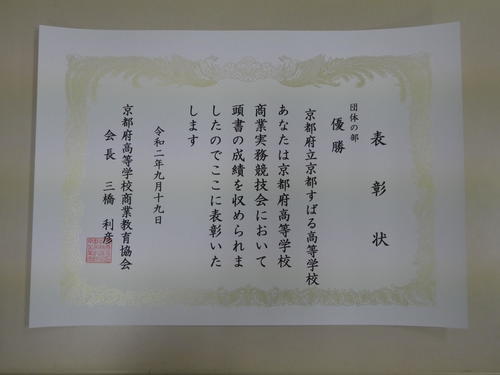 表彰状
団体の部
優勝
京都府立京都すばる高等学校
あなたは京都府高等学校
商業実務競技会において
頭書の成績を収められま
したのでここに表彰いた
します
令和二年九月十九日
京都府高等学校商業教育協会
会長 三橋利彦